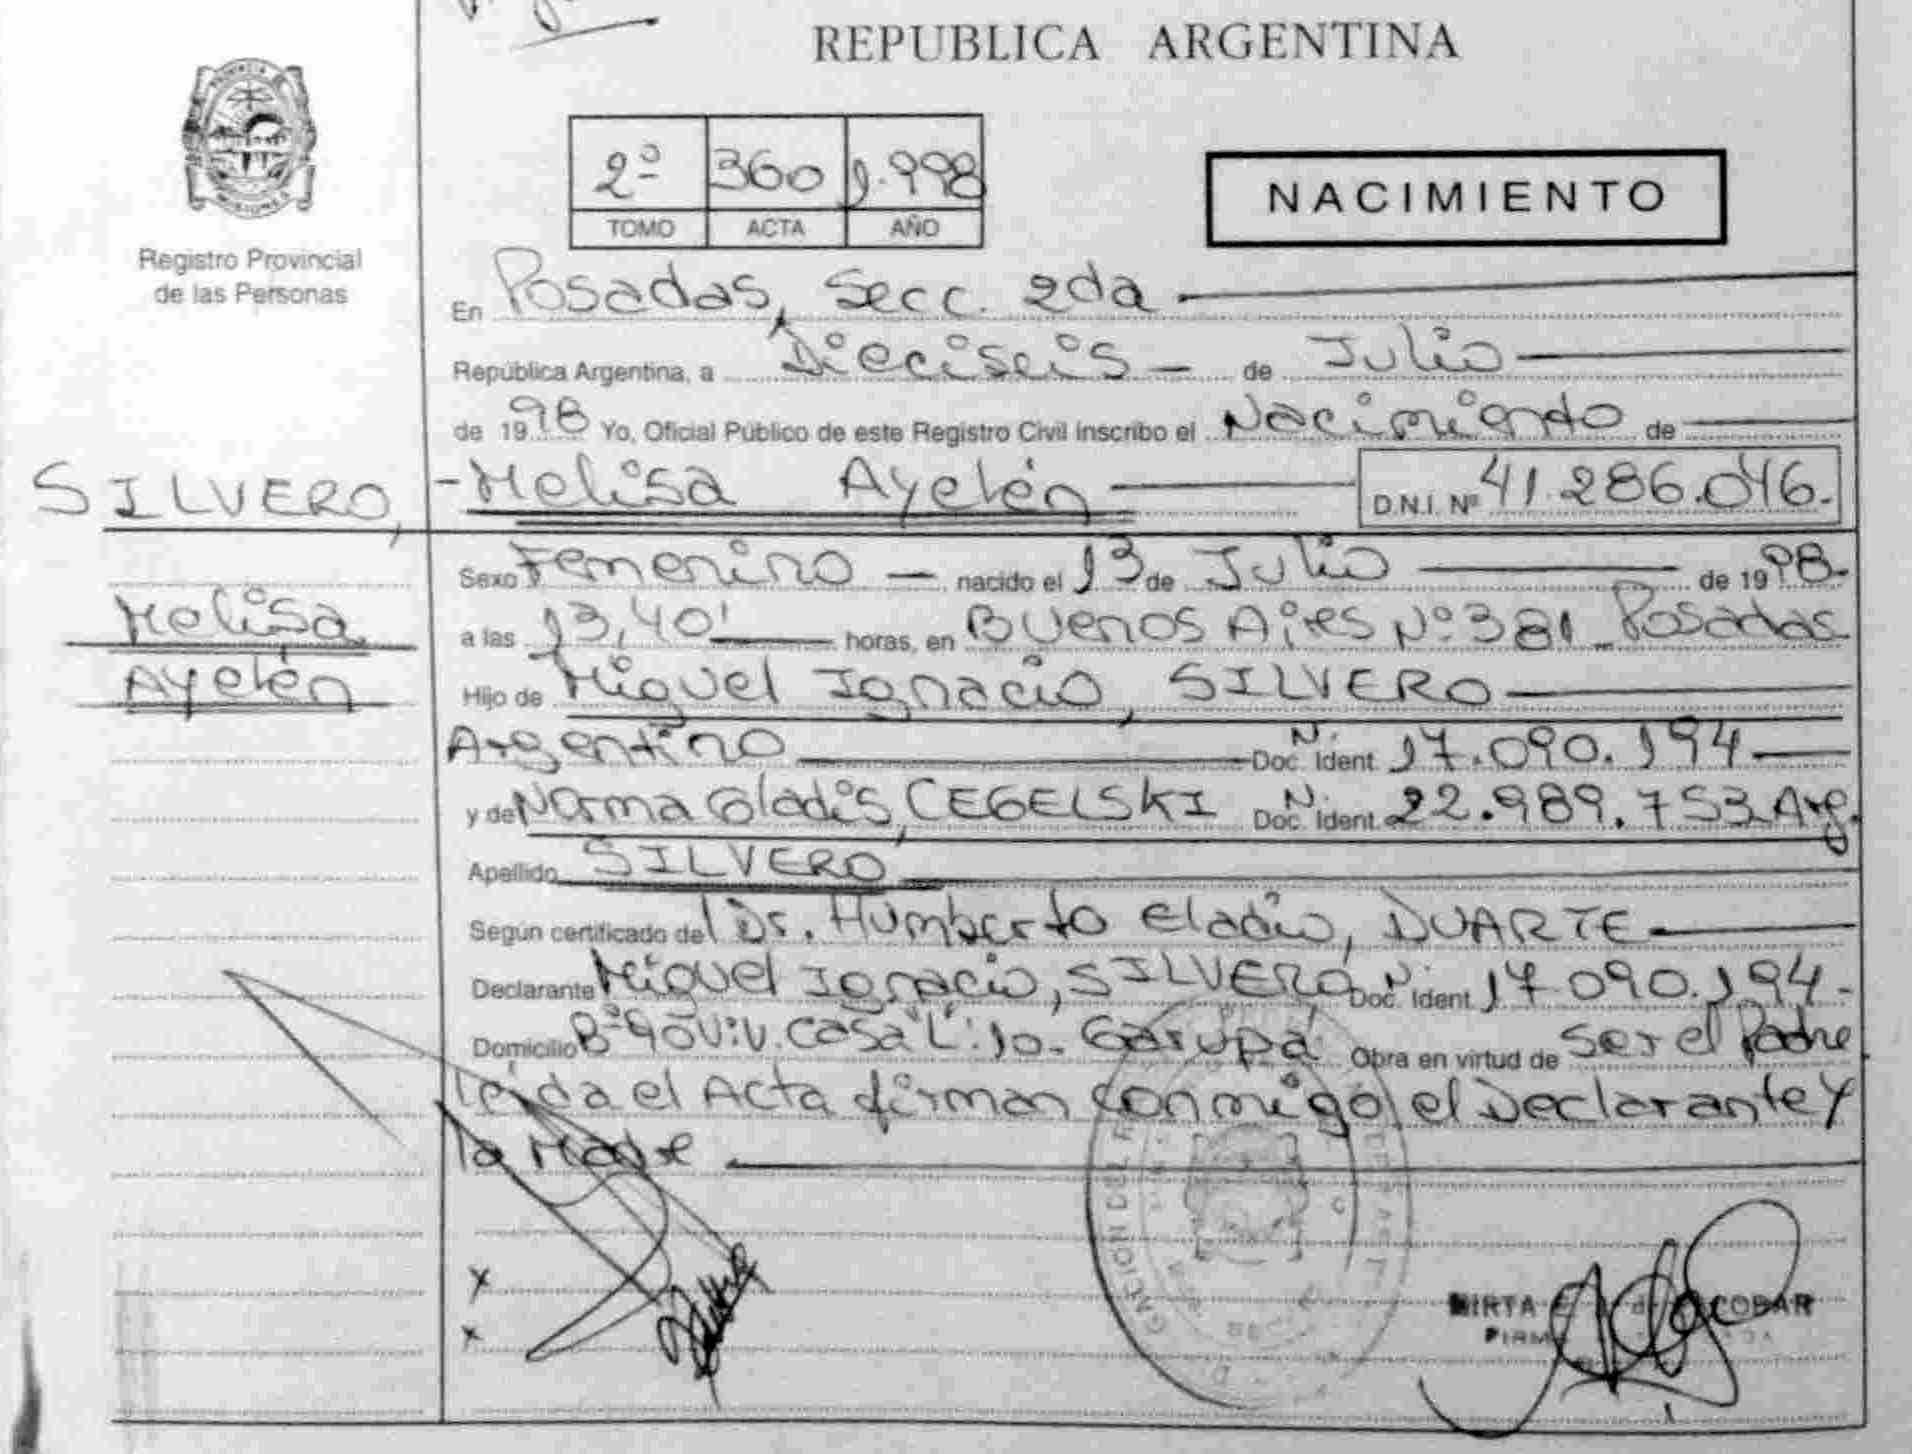 REPUBLICA ARGENTINA
2º 360 1.998
TOMO ACTA AÑO
NACIMIENTO
MISIONES
Registro Provincial
de las Personas
En Posadas, Secc. 2da
República Argentina, a Dieciseis - de Julio
de 1998 Yo, Oficial Público de este Registro Civil inscribo el Nacimiento de
SILVERO, - Melisa Ayelén D.N.I. Nº 41.286.046.-
Melisa
Ayelén
Sexo Femenino - nacido el 13 de Julio de 1998.
a las 13,40' horas, en Buenos Aires Nº 381 - Posadas
Hijo de Miguel Ignacio, SILVERO
Argentino Doc. N. Ident. 17.090.194
y de Norma Gladis, CEGELSKI Doc. N. Ident. 22.989.753 Arg.
Apellido SILVERO
Según certificado del Dr. Humberto Eladio, DUARTE
Declarante Miguel Ignacio, SILVERO Doc. N. Ident. 17.090.194.-
Domicilio Bº 90 Viv. Casa "L": 10. Garupá Obra en virtud de ser el Padre
leída el Acta firman conmigo el Declarante y
la Madre
x
x
MIRTA COBAR